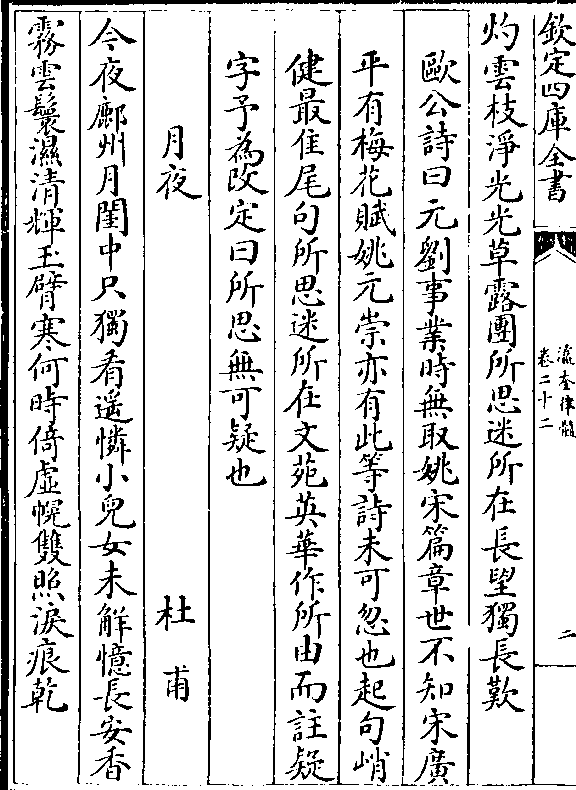 欽定四庫全書
瀛奎律髓
卷二十二
二
灼雲枝淨光光草露團所思迷所在長望獨長歎
歐公詩曰元劉事業時無取姚宋篇章世不知宋廣
平有梅花賦姚元崇亦有此等詩未可忽也起句峭
健最佳尾句所思迷所在文苑英華作所由而註疑
字予為改定曰所思無可疑也
月夜
杜甫
今夜鄜州月閨中只獨看遥憐小兒女未解憶長安香
霧雲鬟濕清輝玉臂寒何時倚虚幌雙照淚痕乾